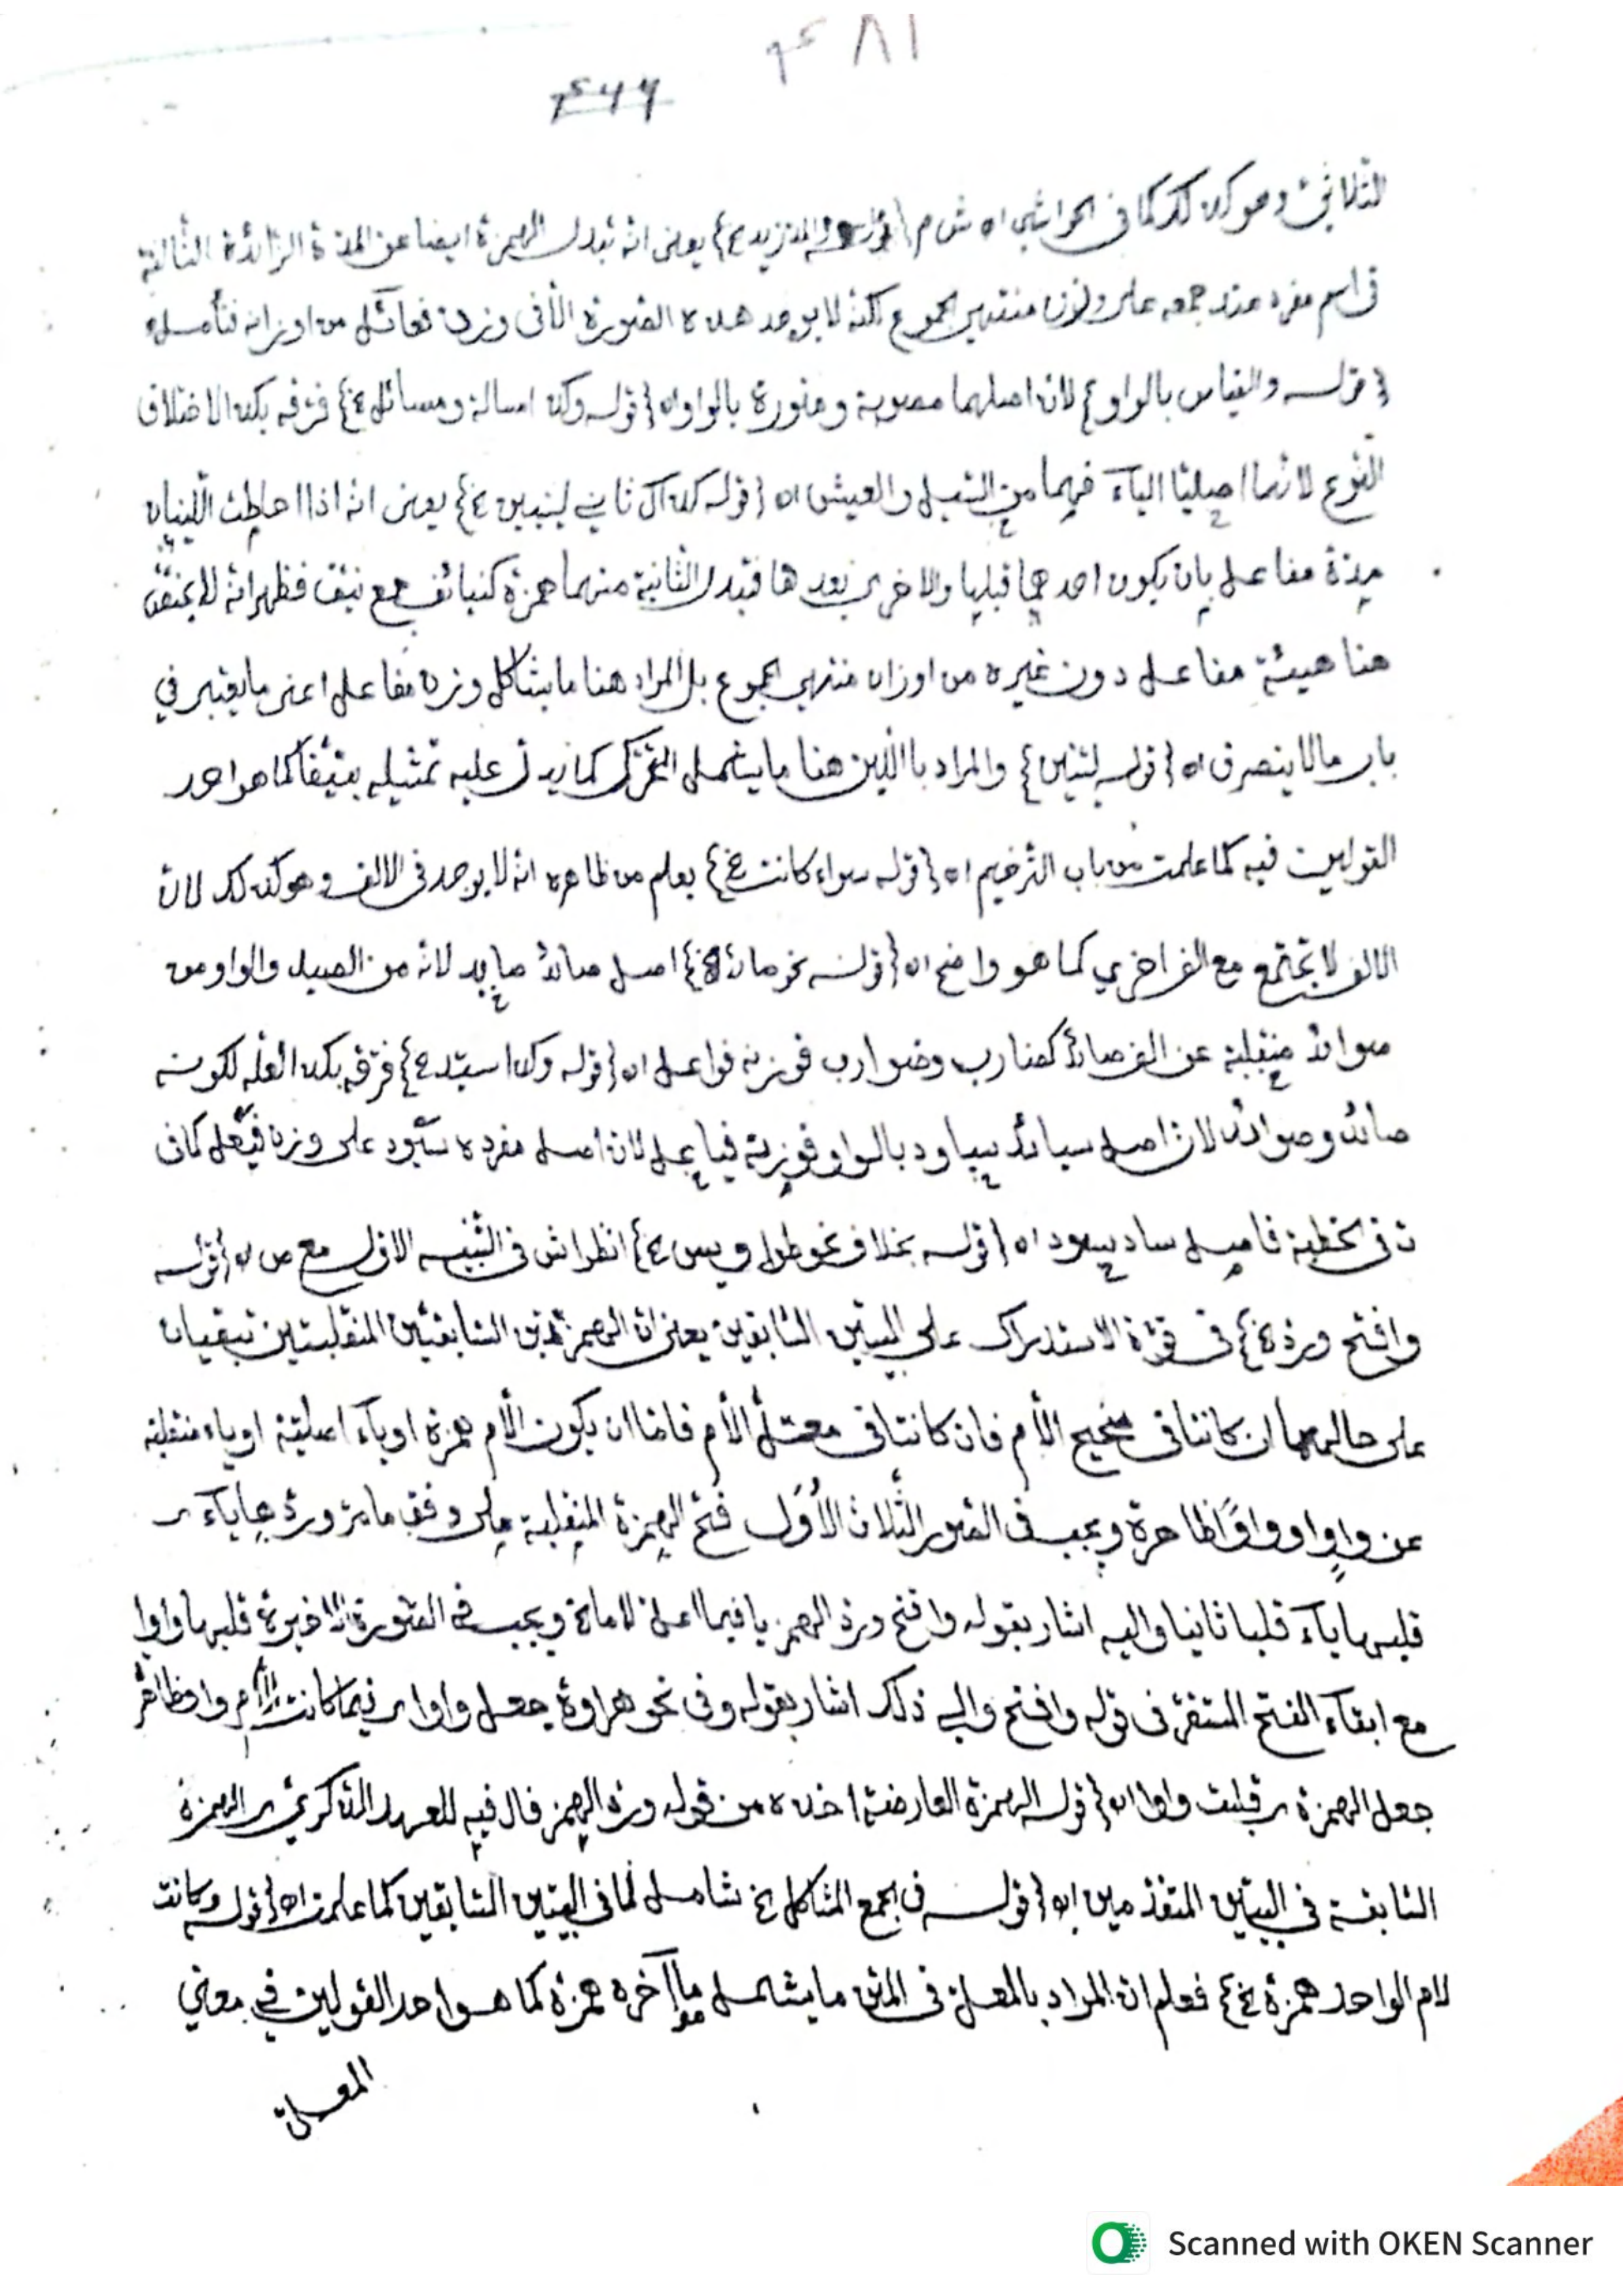 ٤٨١
٤٦٦
الثلاثي وهو كذلك كما في الحواشي اه ش م {قوله والمد زيد خ} يعني انه تبدل الهمزة ايضا عن المدة الزائدة الثالثة
في اسم مفرد عند جمعه على وزن منتهى الجموع لكنه لا يوجد هذه الصورة الا في وزن فعائل من اوزانه فتأمله
{قوله والقياس بالواو} لان اصلهما مصوبة ومنورة بالواو اه {قوله وكذا مسالة ومسائل خ} فرقه بكذا لاختلاف
النوع لانهما اصليتا الياء فيهما من السيل والعيش اه {قوله كذاك ثاني لينين خ} يعني انه اذا احاطت اللينان
مدة مفاعل بان يكون احدهما قبلها والاخرى بعدها فتبدل الثانية منهما همزة كنيائف جمع نيف فظهر انه لا يختص
هنا هيئة مفاعل دون غيره من اوزان منتهى الجموع بل المراد هنا ما يشاكل وزن مفاعل اعني ما يعتبر في
باب ما لا ينصرف اه {قوله لينين} والمراد باللين هنا ما يشمل المتحرك كما يدل عليه تمثيله بنيفا كما هو احد
القولين فيه كما علمت من باب الترخيم اه {قوله سواء كانت خ} يعلم من ظاهره انه لا يوجد في الالف وهو كذلك لان
الالف لا تجتمع مع الف اخرى كما هو واضح اه {قوله نحو صائد خ} اصل صائد صايد لانه من الصيد والواو من
صوائد منقلبة عن الف صائد كضارب وضوارب فوزنه فواعل اه {قوله وكذا سيد خ} فرقه بكذا لعله لكونه
صائد وصوائد لان اصل سيائد سياود بالواو فوزنه فياعل لان اصل مفرده سيود على وزن فيعل كما في
ت في الخطبة فاصل ساد يسود اه {قوله بخلاف نحو طواويس خ} انظر اش في التنبيه الاول مع ص اه {قوله
وافتح ورد خ} في قوة الاستدراك على البيتين السابقين يعني ان الهمزتين السابقتين المنقلبتين تبقيان
على حالهما ان كانتا في صحيح الأم فان كانتا في معتل الأم فاما ان يكون الأم همزة او ياء اصلية او ياء منقلبة
عن واو او واوًا ظاهرة ويجب في الصور الثلاث الأول فتح الهمزة المنقلبة على وفق ما مر وردها ياء
قلبها ياء قلبا ثانيا واليه اشار بقوله وافتح ورد الهمز يا فيما اعل لاما خ ويجب في الصورة الاخيرة قلبها واوا
مع ابقاء الفتح المستقر في قوله وافتح والى ذلك اشار بقوله وفي نحو هراوة جعل واوا فيما كانت الأم واوا ظاهر
جعل الهمزة قلبت واوا اه {قوله الهمزة العارضة} اخذه من قوله ورد الهمز فال فيه للعهد الذكري الهمزة
السابقة في البيتين المتقدمين اه {قوله في الجمع المشاكل خ شامل لما في البيتين السابقين كما علمت اه {قوله وكانت
لام الواحد همزة خ} فعلم ان المراد بالمعل في المتن ما يشمل ما آخره همزة كما هو احد القولين في معنى
المعل
Scanned with OKEN Scanner